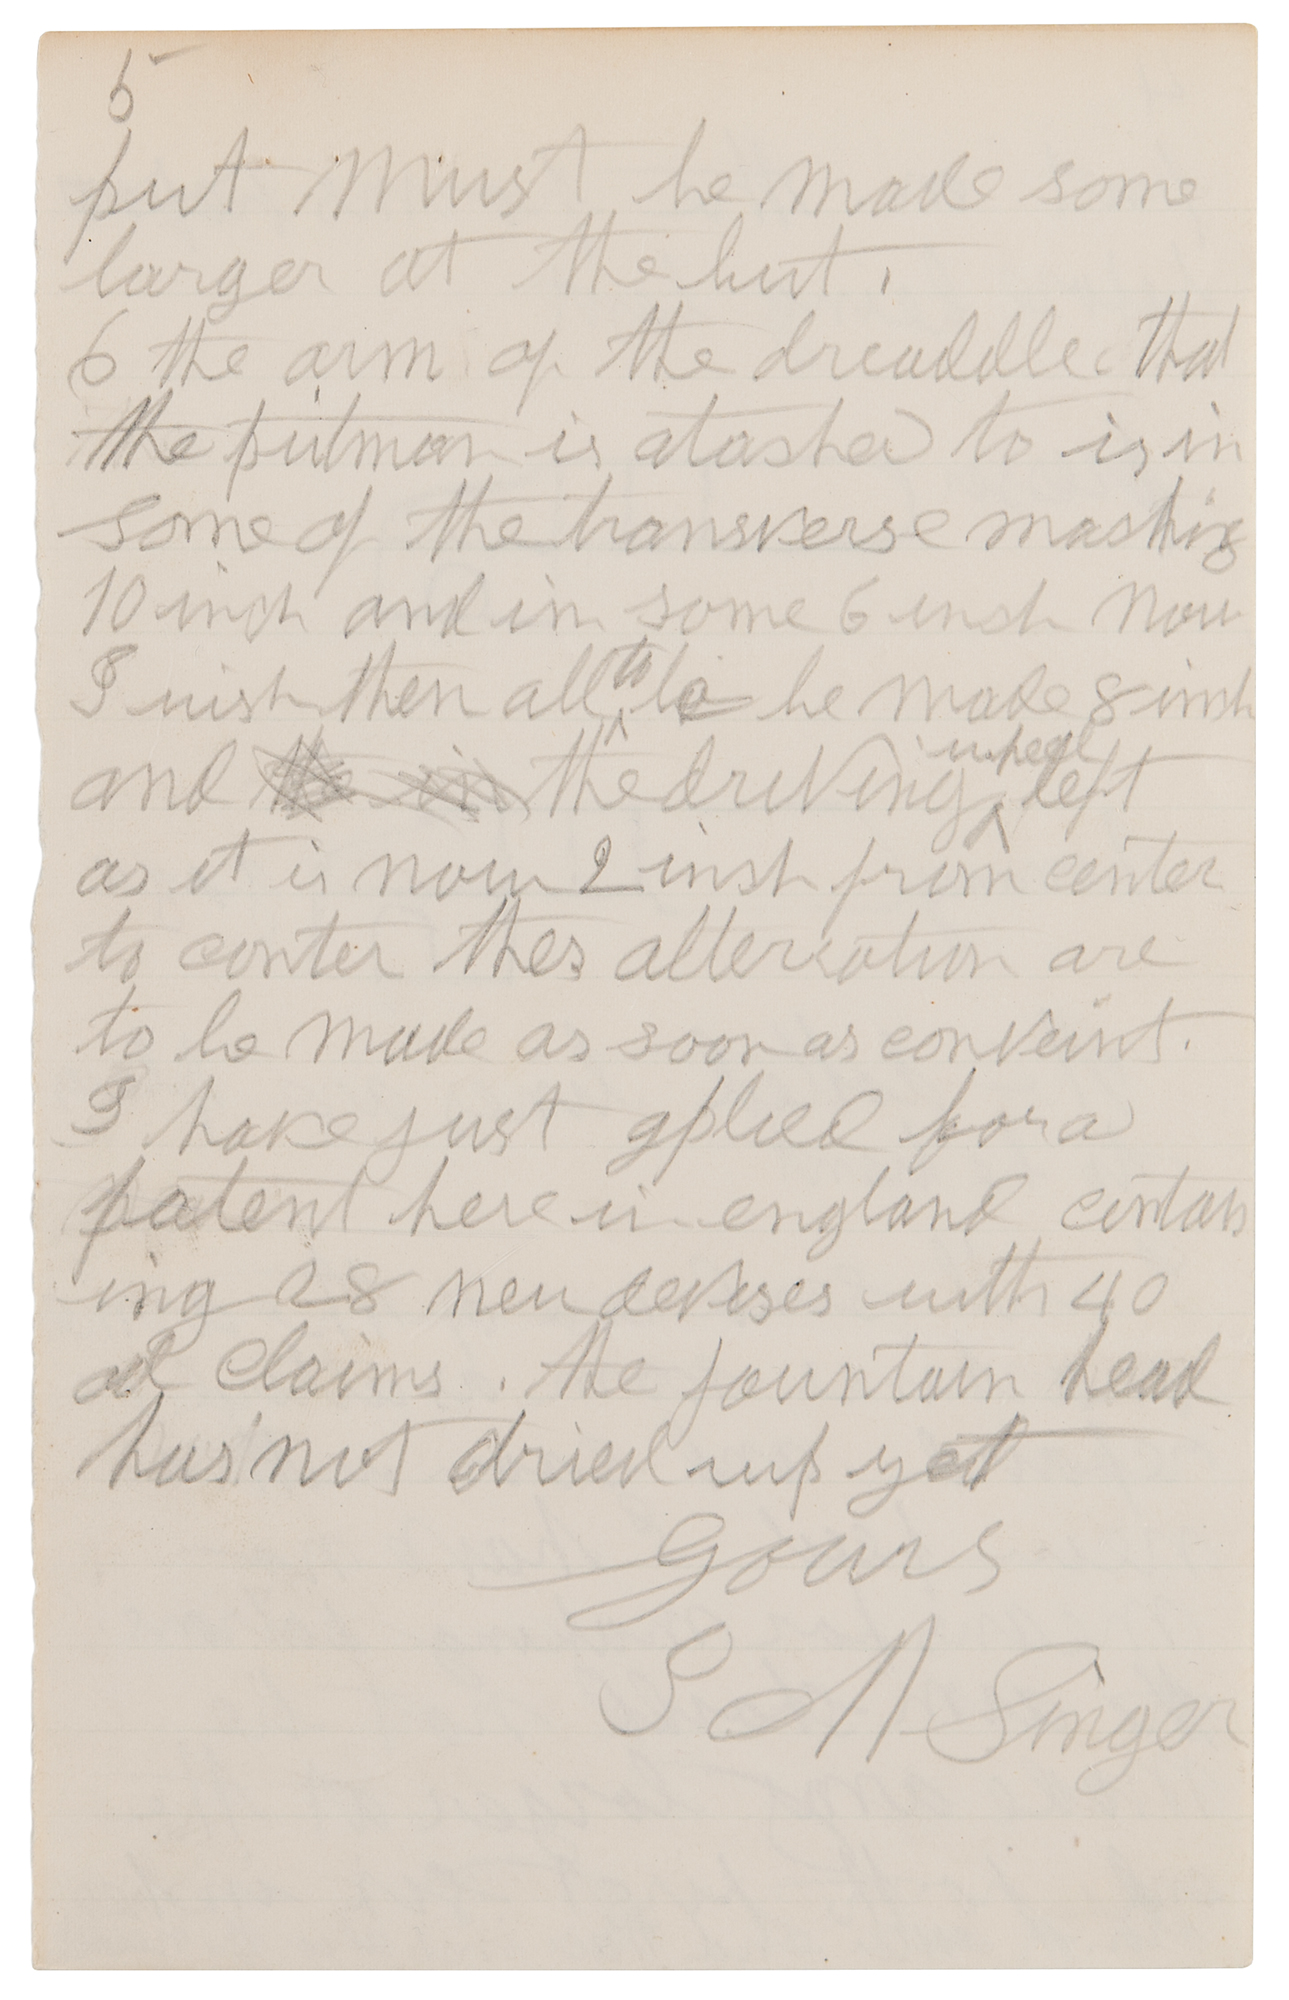 5
put Must be made some
larger at the but.
6 the arm of the dreaddle that
the pitman is atashed to is in
some of the transverse mashins
10 inch and in some 6 inch Now
I wish then all to be be made 8 inch
and the in the driving wheel left
as it is now 2 inch from center
to conter thes alteration are
to be made as soon as conveint.
I have just aplied for a
patent here in england contain
ing 28 new devises with 40
claims. the fountain head
has not dried up yet
Yours
I M Singer